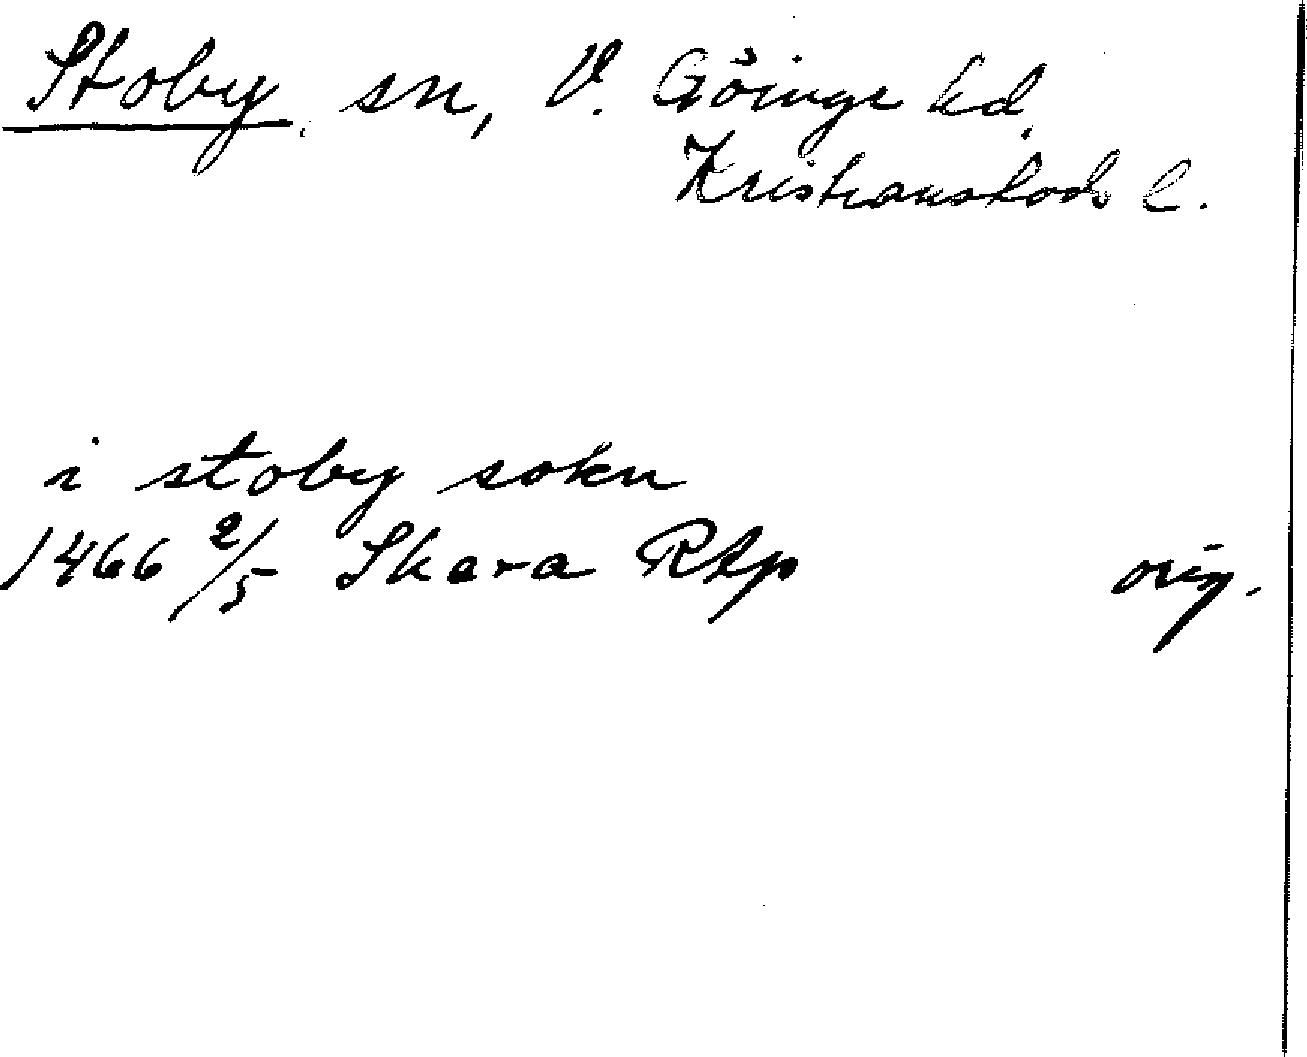 Stoby, sn, V. Göinge hd,
Kristianstads l.
i stoby sokn
1466 2/5 Skara RAp orig.